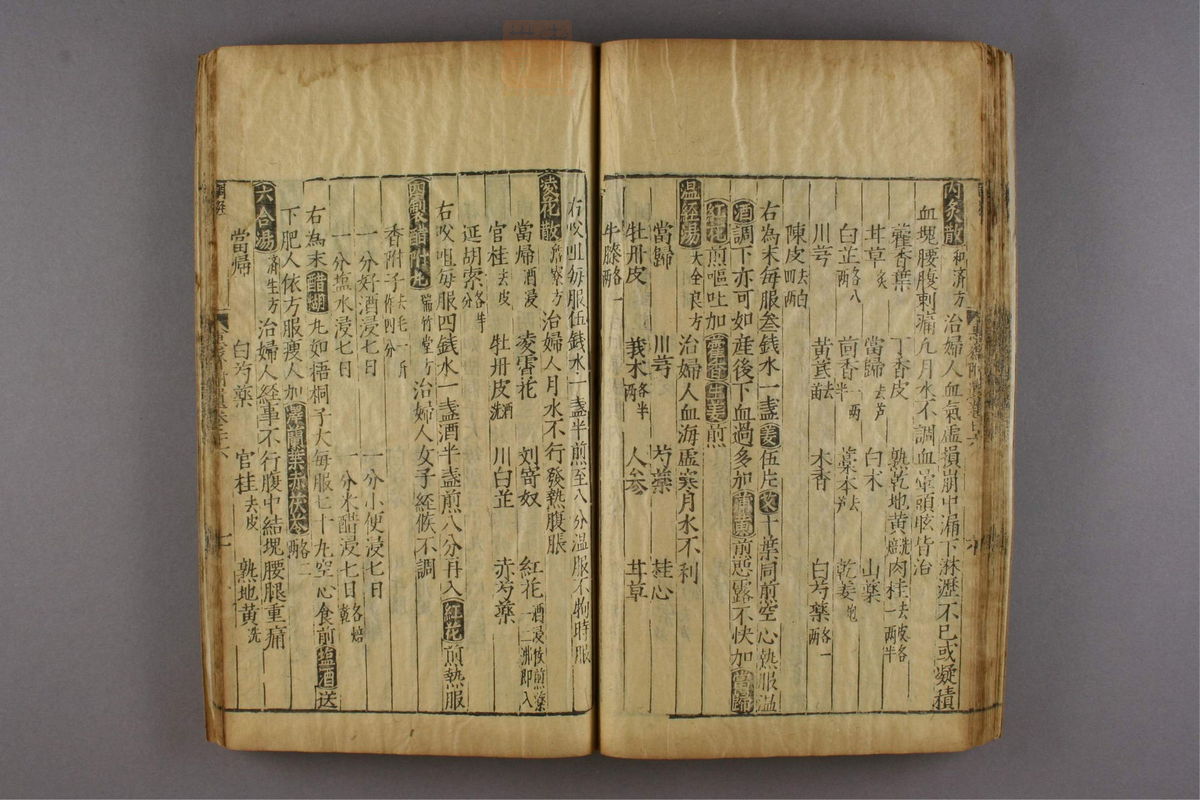 內灸散 和濟方 治婦人血氣虛損崩中漏下淋瀝不已或凝積
血塊腰腹刺痛凡月水不調血暈頭眩皆治
藿香葉 丁香皮 熟乾地黃洗焙 肉桂去皮各一兩半
甘草炙 當歸去芦 白朮 山藥
白芷各八兩 茴香一兩半 藁本去芦 乾姜炮
川芎 黃芪去芦 木香 白芍藥各一兩
陳皮去白四兩
右為末每服叁錢水一盞姜伍片艾十葉同煎空心熱服温
酒調下亦可如產後下血過多加蒲黃煎惡露不快加當歸
紅花煎嘔吐加藿香生姜煎
温經湯 大全良方 治婦人血海虛寒月水不利
當歸 川芎 芍藥 桂心
牡丹皮 莪朮各半兩 人参 甘草
牛膝各一兩
右㕮咀每服伍錢水一盞半煎至八分温服不拘時服
凌花散 治婦人月水不行發熱腹脹
當歸酒浸 凌霄花 刘寄奴 紅花酒浸候煎藥一二沸即入
官桂去皮 牡丹皮酒洗 川白芷 赤芍藥
延胡索各半分
右㕮咀每服四錢水一盞酒半盞煎八分再入紅花煎熱服
四製醋附丸 瑞竹堂方 治婦人女子經候不調
香附子去毛一斤作四分
一分好酒浸七日 一分小便浸七日
一分塩水浸七日 一分米醋浸七日各焙乾
右為末醋糊丸如梧桐子大每服七十丸空心食前塩酒送
下肥人依方服瘦人加澤蘭葉赤茯苓各二兩
六合湯 濟生方 治婦人經事不行腹中結塊腰腿重痛
當歸 白芍藥 官桂去皮 熟地黃洗